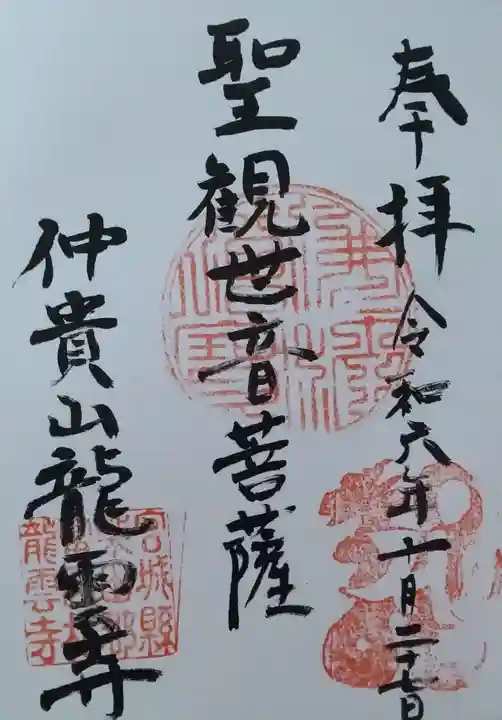 奉拝 令和六年十月二十七日
聖観世音菩薩
仲貴山龍雲寺
宮城縣
龍雲寺